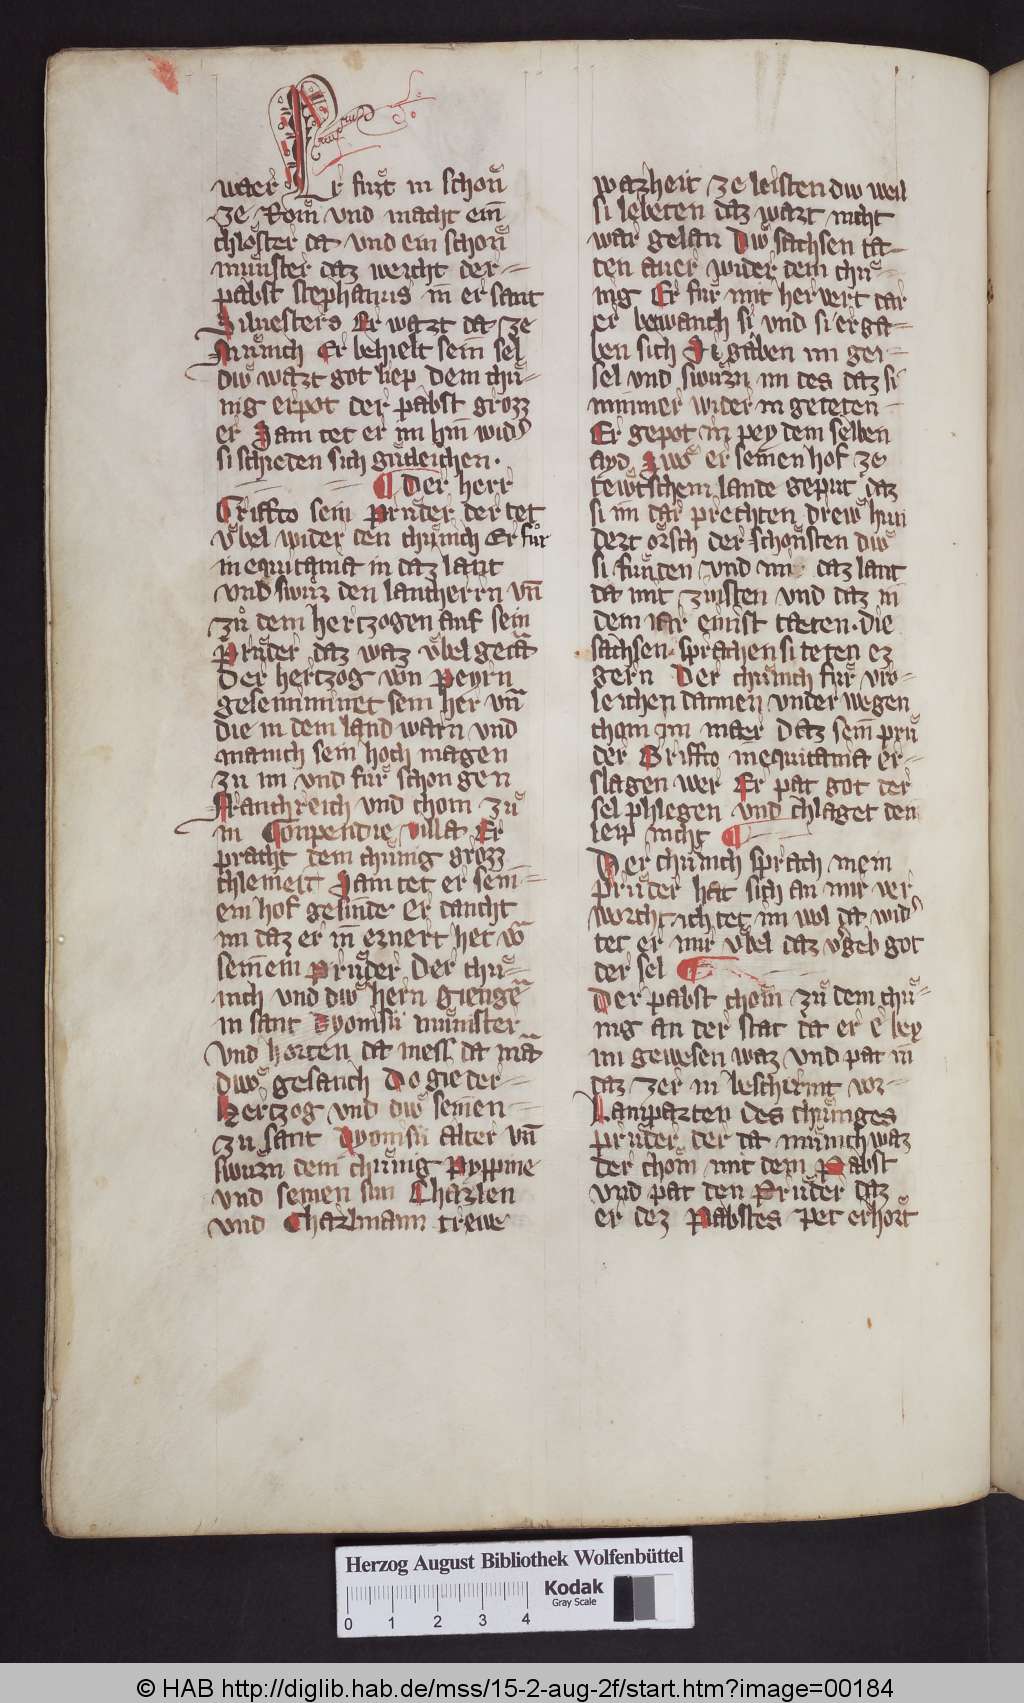 waer Er furt in schon̄
ze Rom vnd macht ein̄
chloͤster da vnd ein schon̄
muͤnster daz weicht der
pabst stephanus in er sant
Siluesters Er wart da ze
Muͤnich Er behielt sein sel
diw wart got liep dem chuͤ-
nig erpot der pabst grozz
er Sam tet er im hin wid'
si schieden sich guͤtleichen.
Der herr
Griffto sein Pruͤder der tet
vͤbel wider den chuͤnich Er fuͤr
in equitania in daz lant
vnd swuͤr den lantherrn vn̄
zuͦ dem hertzogen auf sein
Pruͤder daz waz vͤbel getā
Der hertzog von Peyrn
gesemminet sein her vn̄
die in dem land warn vnd
manich sein hoch magen
zu im vnd fuͤr schon gen
Franchreich vnd chom zuͤ
in Conpendie villa Er
pracht dem chuͤnig grozz
chleineit Sam tet er sein-
em hof gesinde Er dancht
im daz er in ernert het vō
seinem Pruͤder Der chuͤ-
nich vnd diw hern Giengē
in sant Dyonisii muͤnster
vnd horten da mess da mā
diwͤ gesanch Do gie der
Hertzog vnd diw seinen
zu sant Dyonisii Alter vn̄
swuͤrn dem chuͤnig Pyppine
vnd seinen sun Charlen
vnd Charlmann trewe
warheit ze leisten diw weil
si lebeten daz wart nicht
war gelan Diwͤ sachsen ta-
ten auer wider dem chuͤ-
nig Er fuͤr mit heruert dar
er betwanch si vnd si erga-
ben sich Si gaben im gei-
sel vnd swuͤrn im des daz si
nimmer wider in geteten
Er gepot in pey dem selben
ayd Swo er seinen hof ze
tewtschem lande geput daz
si im dar prechten drew hun
dert orsch der schonsten diwͤ
si funden vnd im daz lant
da mit zinsten vnd daz in
dem iar einist taeten. die
sachsen sprachen si teten ez
gern Der chuͤnich fuͤr vro-
leichen dannen vnder wegen
chom im maer Daz sein pruͤ
der Griffto in equitania er-
slagen wer Er pat got der
sel phlegen vnd chlaget den
leip nicht
Der chuͤnich sprach mein
Pruͤder hat sich an mir ver
worcht ich tet im wol da wid'
tet er mir vͤbel daz v'geb got
der sel
Der pabst chom zuͤ dem chuͤ-
nig an der stat da er e bey
im gewesen waz vnd pat in
daz zer in beschirmt vor
Lamparten Des chuͤniges
pruͤder der da muͤnich waz
der chom mit dem Pabst
vnd pat den Pruͤder daz
er dez Pabstes Pet erhort
Herzog August Bibliothek Wolfenbüttel
Kodak
Gray Scale
0 1 2 3 4
© HAB http://diglib.hab.de/mss/15-2-aug-2f/start.htm?image=00184